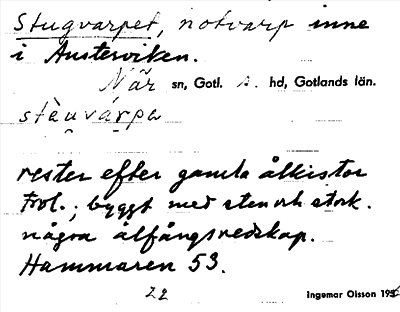 Stugvarpet, notvarp inne
i Austerviken.
När sn, Gotl. S. hd, Gotlands län.
stèuvárpa
rester efter gamla ålkistor
trol.; byggt med sten och stock.
några ålfångsredskap.
Hammaren 53.
22
Ingemar Olsson 195